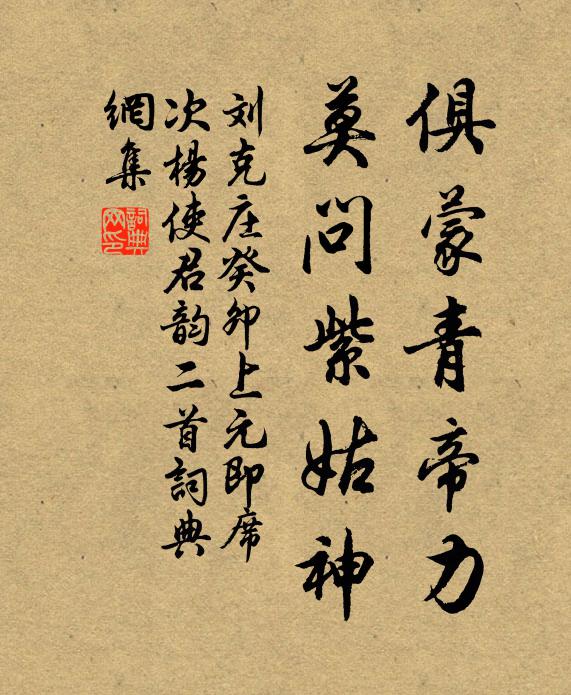 俱蒙青帝力
莫问紫姑神
刘克庄癸卯上元即席
次楊使君韵二首詞典
網集
詞典网印